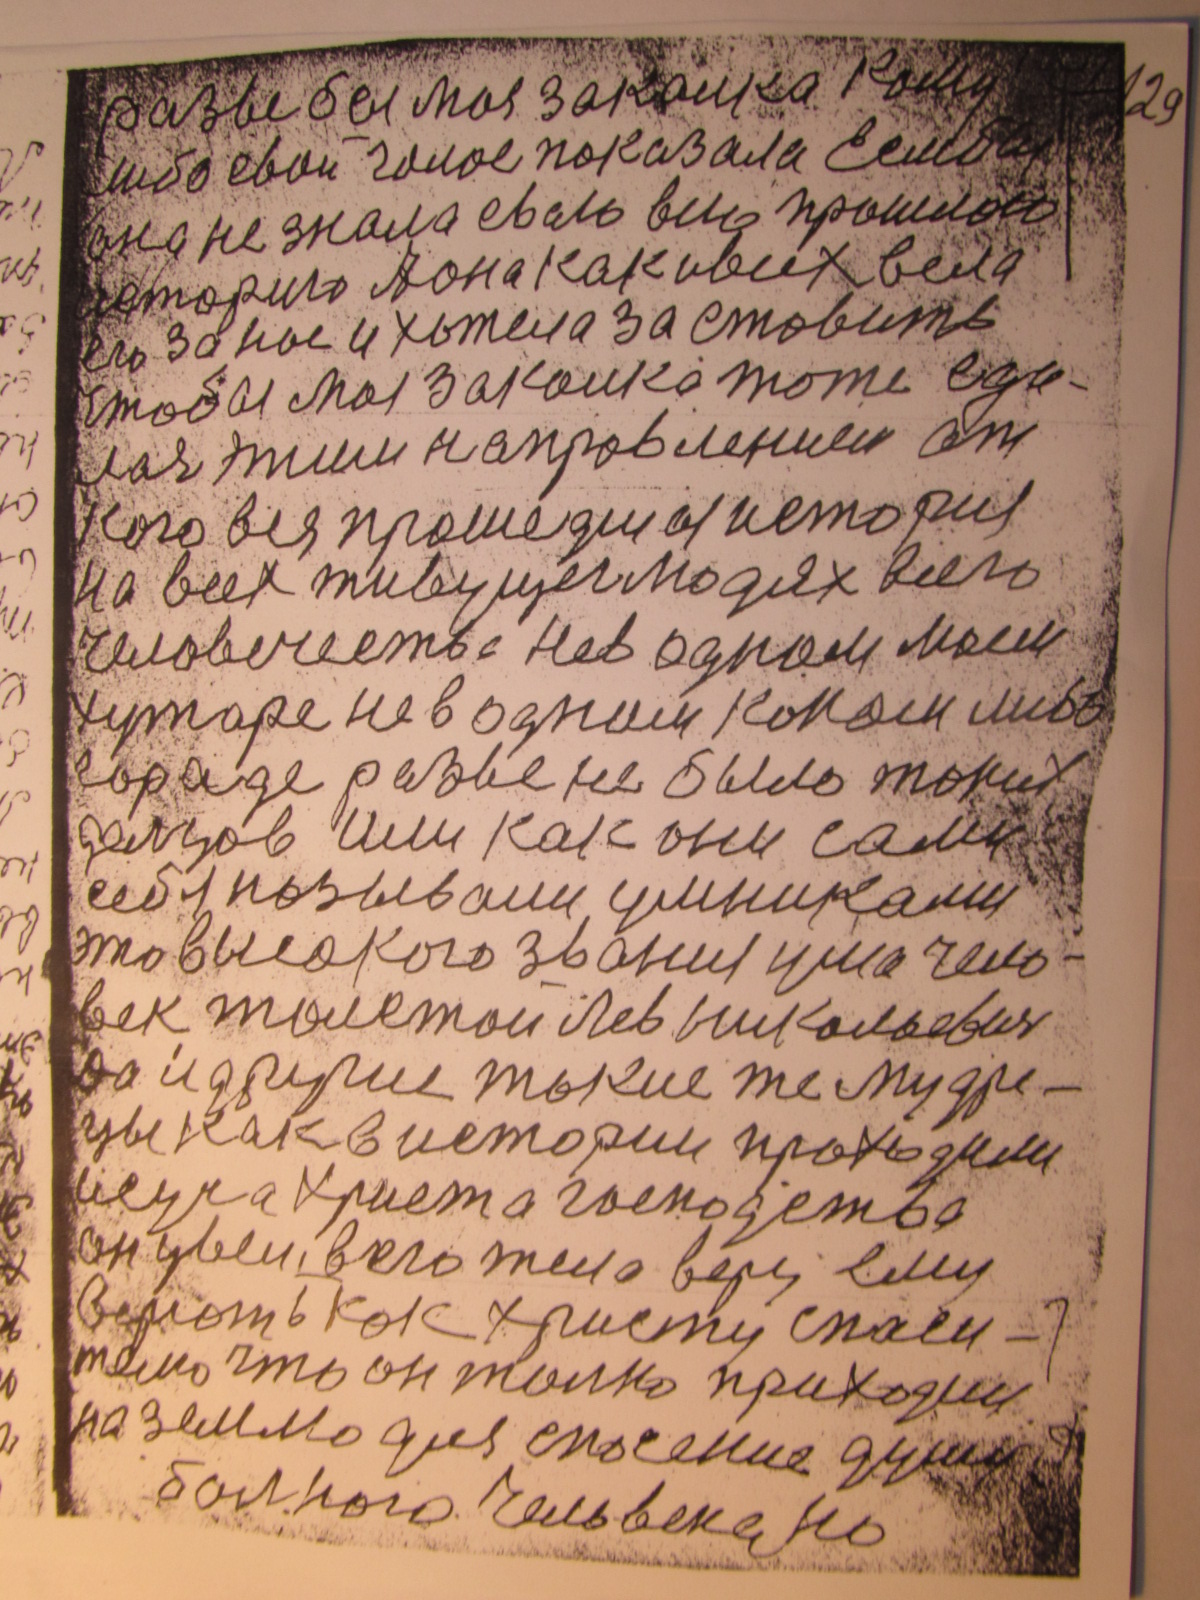 129
разве бы моя закалка кому
либо свой голос показала Если бы
она не знала сваю всю прошлою
историю Аона как и всех вела
его за нос и хотела заставить
чтобы моя закалка тоже сде-
лая этим направлением от
кого вся прошедшая история
на всех живущег людях всего
человечества Нев одном моем
хуторе нев одном каком либо
гораде разве не было таких
или как они сами
себя называли умниками
это высокого звания ума чело-
век толстой Лев Никольевич
да и другие такие же мудре-
цы как в истории проходили
исуса Христа господства
он увси, в его тела веру ему
Верють как Христу спаси-
телю что он толко приходил
на землю для спасение душу
болного человека, но